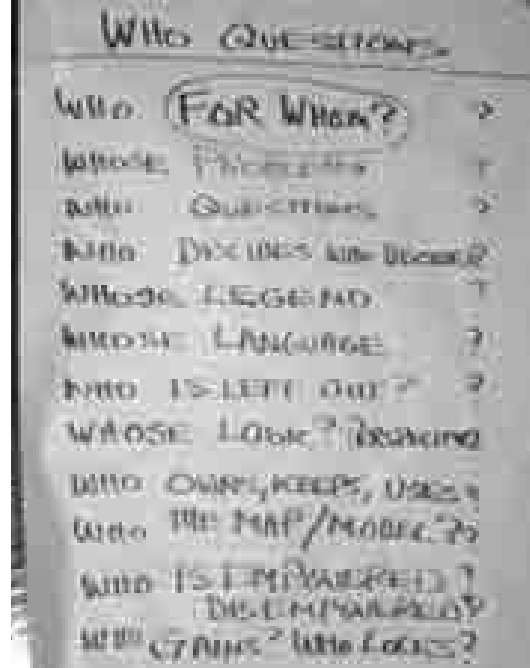 WHO QUESTIONS
WHO FOR WHOM? ?
WHOSE ?
WHO QUESTIONS ?
WHO DECIDES WHO DECIDES?
WHOSE LEGEND ?
WHOSE LANGUAGE ?
WHO IS LEFT OUT? ?
WHOSE LOGIC?
WHO OWNS, KEEPS, USES
WHO THE MAP/MODEL?
WHO IS EMPOWERED?
DISEMPOWERED?
WHO GAINS? WHO LOSES?